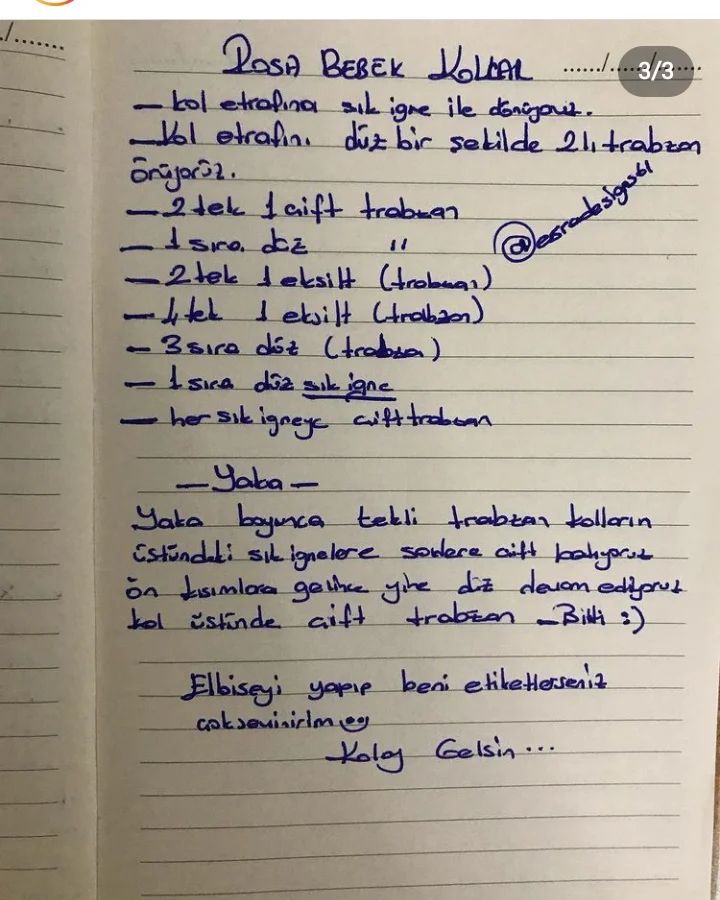 ./.......
ROSA BEBEK KOLLAR ....../....../......
3/3
— kol etrafına sık iğne ile dönüyoruz.
— Kol etrafını düz bir şekilde 21 trabzan
örüyoruz.
@esradesigns61
— 2 tek 1 çift trabzan
— 1 sıra düz "
— 2 tek 1 eksilt (trabzan)
— 4 tek 1 eksilt (trabzan)
— 3 sıra düz (trabzan)
— 1 sıra düz sık iğne
— her sık iğneye çift trabzan
— Yaka —
Yaka boyunca tekli trabzan kolların
üstündeki sık iğnelere çift
ön kısımlara gelince yine düz devam ediyoruz
kol üstünde çift trabzan — Bitti :)
Elbiseyi yapıp beni etiketlerseniz
çok sevinirim
Kolay Gelsin...